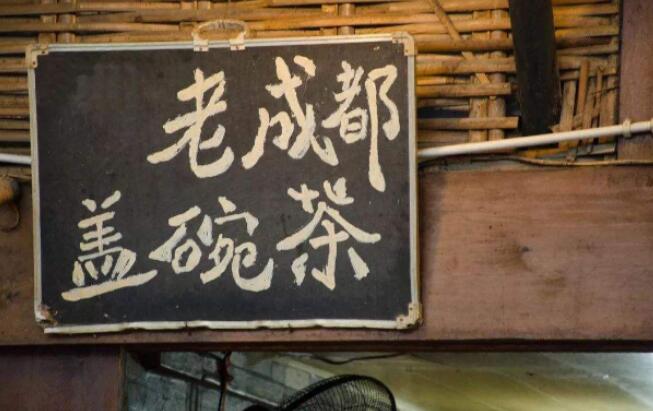 老成都
盖碗茶